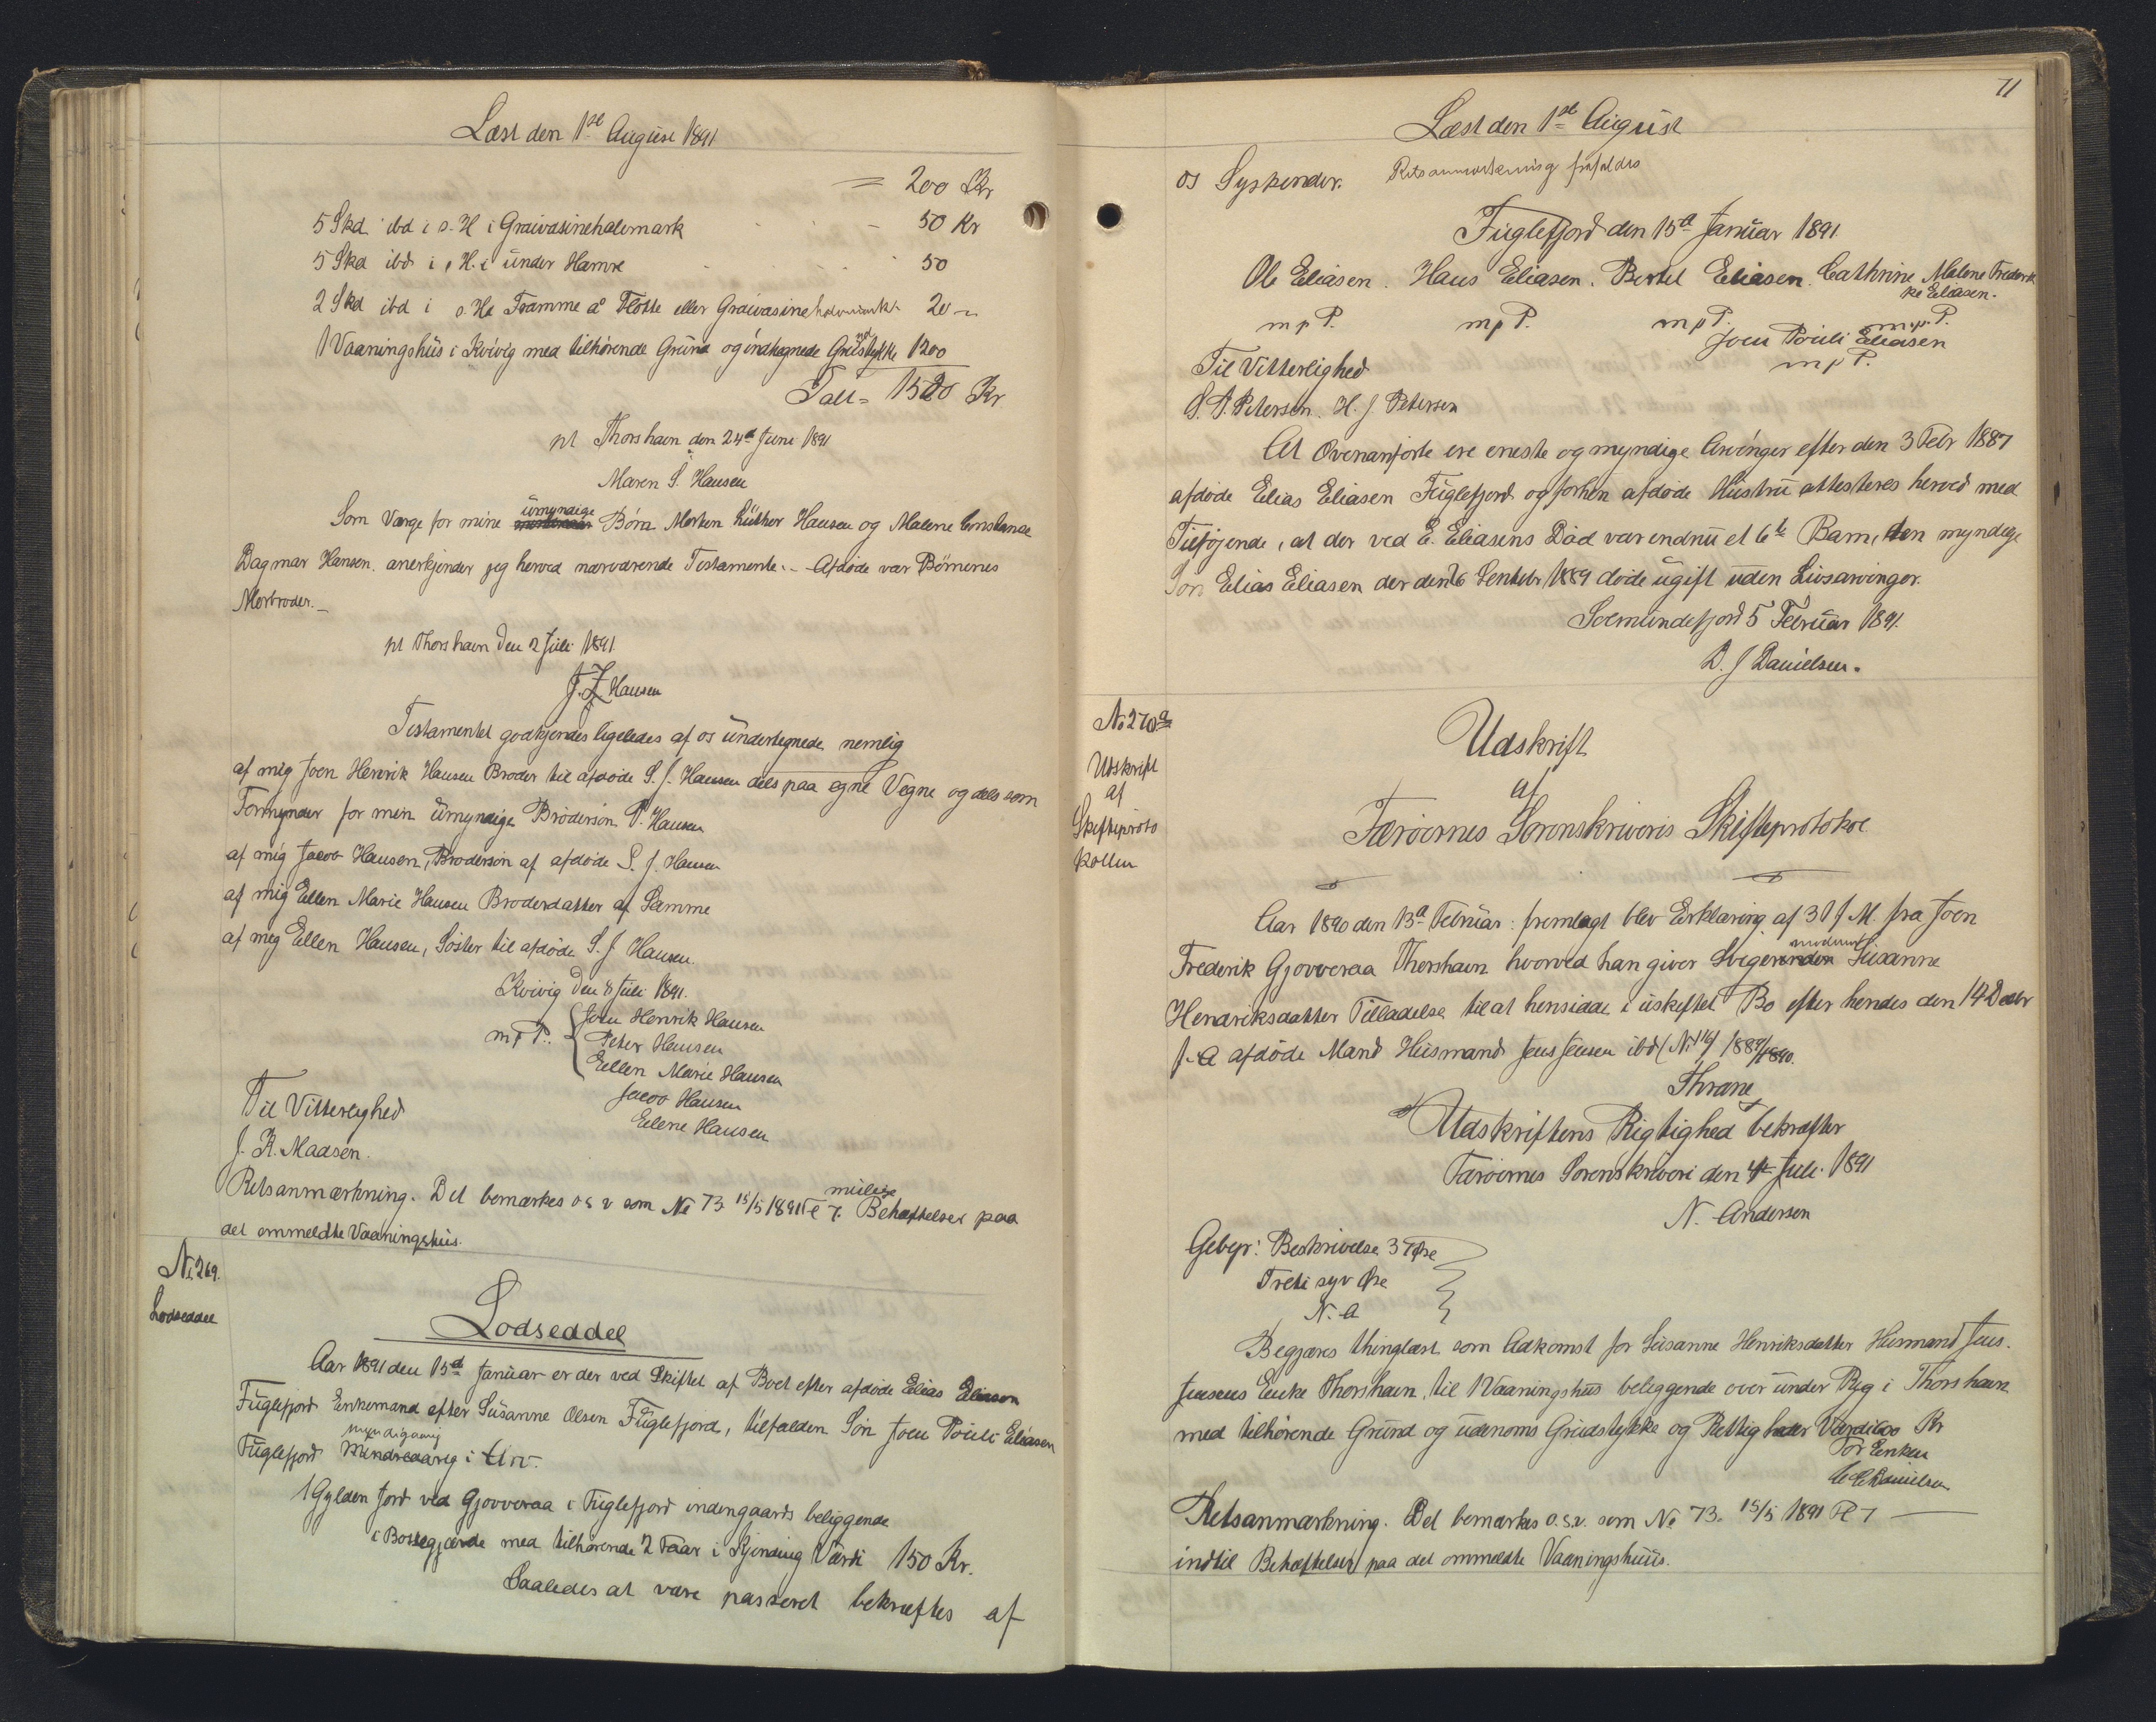 Læst den 1st August 1891
= 200 Kr
5 Skd ibd i s. H i Graivasinehalemark - 50 Kr
5 Skd ibd i s. H. i under Hamre 50
2 Skd ibd i s. He Framme å Flotte eller Graivasinehalemark 20 "
1 Vaaningshus i Kvivig med tilhørende Grund og indhegnede Grdstykke 1200
Tall = 1520 Kr
pt Thorshavn den 24d Juni 1891
Maren S. Hansen
Som Værge for mine umyndige Børn Morten Luther Hansen og Malene Constanse
Dagmar Hansen, anerkjender jeg herved nærværende Testamente. - Afdøde var Børnenes
Morbroder. -
pt Thorshavn den 2 Juli 1891
J. Z. Hansen
Testamentet godkjendes ligeledes af os undertegnede nemlig
af mig Joen Henrik Hansen Broder til afdøde S. J. Hansen dels paa egne Vegne og dels som
Formynder for min umyndige Brødersøn P. Hansen
af mig Jacob Hansen, Brodersøn af afdøde S. J. Hansen
af mig Ellen Marie Hansen Broderdatter af Samme
af mig Ellen Hansen, Søster til afdøde S. J Hansen
Kvivig den 8 Juli 1891.
m. p. P. Joen Henrik Hansen
Peter Hansen
Ellen Marie Hansen
Jacob Hansen
Elene Hansen
Til Vitterlighed
J. K. Maasen.
Retsanmærkning. Det bemærkes o s v som No 73 15/5 1891 Behæftelser paa
det ommeldte Vaaningshus.
No 269.
Lodseddel
Lodseddel
Aar 1891 den 15d Januar er der ved Skiftet af Boet efter afdøde Elias Eliasen
Fuglefjord Enkemand efter Susanne Olsen Fuglefjord, tilfalden Søn Joen Pouli Eliasen
Fuglefjord myndigaarig i Arv.
1 Gylden Jord ved Gjovveraa i Fuglefjord indengaards beliggende
i Bossegjærde med tilhørende 2 Faar i Skjending Værdi 150 Kr.
Saaledes at være passeret bekræftes af
71
Læst den 1st August
os Syskender. Retsanmærkning frafaldes
Fuglefjord den 15d Januar 1891
Ole Eliasen. Hans Eliasen. Bertel Eliasen. Cathrine Malene Frederik
ke Eliasen.
m p P. m p P. m p P. m. p. P.
Joen Pouli Eliasen
m p P.
Til Vitterlighed
S. P. Petersen. H. J. Petersen
At Ovenanførte ere eneste og myndige Arvinger efter den 3 Febr 1887
afdøde Elias Eliasen Fuglefjord og forhen afdøde Hustru attesteres herved med
Tilføjende, at der ved E. Eliasens Død var endnu et 6te Barn, den myndige
Søn Elias Eliasen der den 6 Septebr 1889 døde ugift uden Livsarvinger.
Solmundefjord 5 Februar 1891.
D. J Danielsen.
No 270a
Udskrift
af
Skifteproto
kollen
Udskrift
af
Færøernes Sorenskriveris Skifteprotokol
Aar 1890 den 13d Februar: fremlagt blev Erklæring af 31 f M. fra Joen
Frederik Gjovveraa Thorshavn hvorved han giver Svigermoderen Susanne
Hendriksdatter Tilladelse til at hensidde i uskiftet Bo efter hendes den 14 Decbr
f. A afdøde Mand Husmand Jens Jensen ibd (No 119/ 1889/1890.
Thrane
Udskriftens Rigtighed bekræfter
Færøernes Sorenskriveri den 4de Juli 1891
N. Andersen
Gebyr: Beskrivelse 37 Øre
Treti syv Øre
N. A
Begjæres thinglæst som Adkomst for Susanne Henriksdatter Husmand Jens
Jensens Enke Thorshavn, til 1 Vaaningshus beliggende over under Ryg i Thorshavn
med tilhørende Grund og udenoms Grudstykke og Rettigheder Værdi Kr
For Enken
Danielsen
Retsanmærkning. Det bemærkes o. s. v. som No 73. 15/5 1891 Pl 7
indtil Behæftelser paa det ommeldte Vaaningshuus.